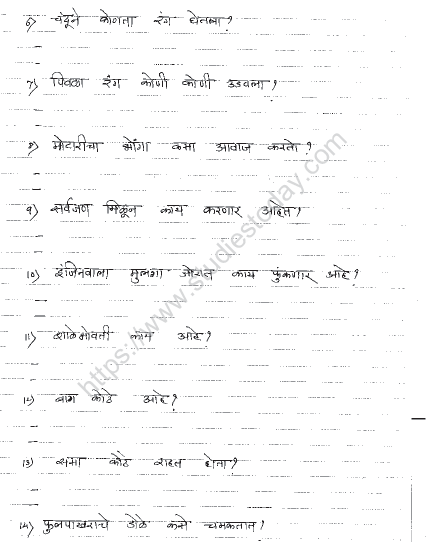 ६) चंदूने कोणता रंग घेतला?
७) पिवळा रंग कोणी कोणी उडवला?
८) मोटारीचा भोंगा कसा आवाज करतो?
९) सर्वजण मिळून काय करणार आहेत?
१०) इंजिनवाला मुलगा जोरात काय फुंकणार आहे?
११) शाळेभोवती काय आहे?
१२) बाग कोठे आहे?
१३) ससा कोठे राहत होता?
१४) फुलपाखराचे डोळे कसे चमकतात?
https://www.studiestoday.com